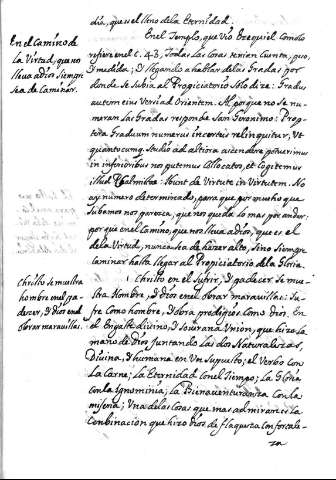 dia, que es el lleno de la Eternidad.
En el Camino de
la Virtud, que nos
lleva a Dios siempre
se a de Caminar.
En el Templo, que vio Ezequiel Como lo
refiere en el C. 43, todas las Cosas tenian Cuenta, peso,
y medida; y llegando a hablar de las Gradas por
donde se Subia al Propiciatorio Solo dize: Gradus
autem eius Versi ad Orientem. Al por que no se nu-
meran las Gradas responde San Geronimo:
Graduum numerus incertus relinquitur, Ut
quantocumq. Studio ad altiora ascendere potuerimus
in inferioribus nos putemus Collocatos, et Cogitemus
illud Psalmistae: Ibunt de Virtute in Virtutem. No
ay numero determinado, para que por mucho que
Subamos nos paresca, que nos queda lo mas por andar:
por que en el Camino, que nos lleva a Dios, que es el
de la Virtud, nunca se a de hazer alto, Sino Siempre
Caminar hasta llegar al Propiciatorio de la Gloria.
Christo se muestra
hombre en el pa-
decer, y Dios en el
obrar maravillas.
Christo en el Sufrir, y padecer se mue-
stra Hombre, y Dios en el obrar maravillas: Su-
fre Como hombre, y obra prodigios Como Dios. En
el Engaste divino, y Soverana Union, que hizo la
mano de Dios juntando las dos Naturalezas,
Divina, y humana en Un Supuesto; el Verbo Con
la Carne; La Eternidad Con el Tiempo; La Gloria
Con la Ignominia; La Bienaventuranza Con la
miseria; Una de las Cosas que mas admiran es la
Conbinacion que hizo Dios de flaqueza Con fortale-
za